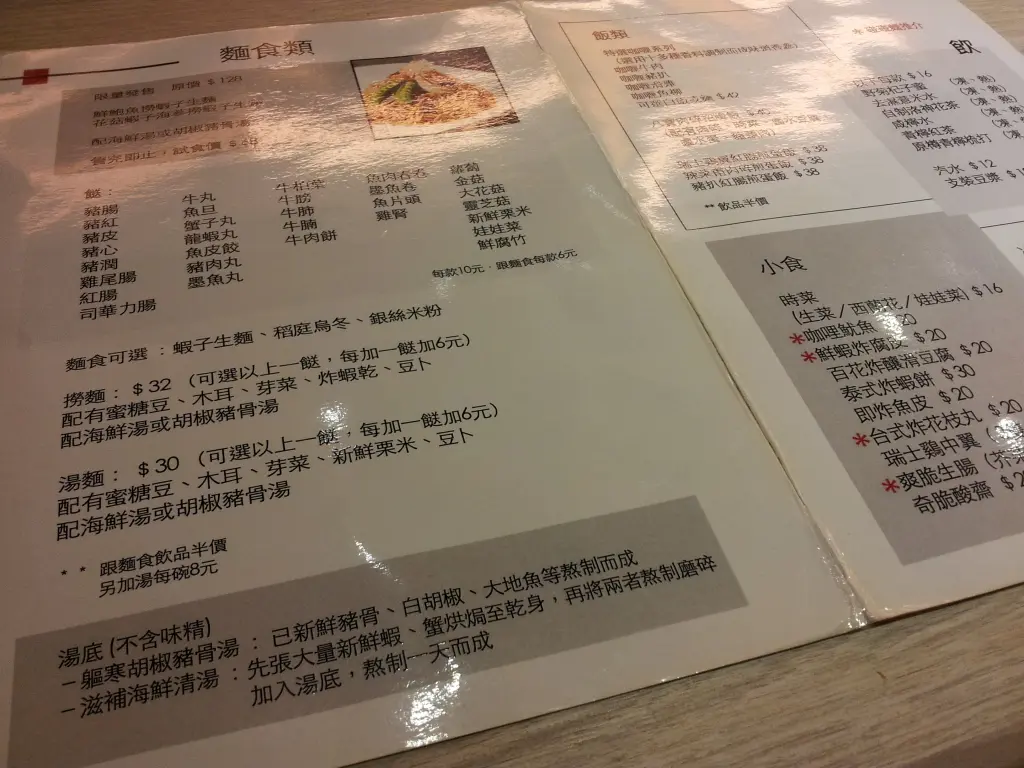 麵食類
限量發售 原價 $128
鮮鮑魚撈蝦子生麵
花菇蝦子海參撈蝦子生麵
配海鮮湯或胡椒豬骨湯
售完即止，試食價
餸：
豬腸
豬紅
豬皮
豬心
豬潤
雞尾腸
紅腸
司華力腸
牛丸
魚旦
蟹子丸
龍蝦丸
魚皮餃
豬肉丸
墨魚丸
牛膀
牛肺
牛腩
牛肉餅
墨魚卷
魚片頭
雞腎
蘿蔔
金菇
大花菇
靈芝菇
新鮮粟米
娃娃菜
鮮腐竹
每款10元．跟麵食每款6元
麵食可選：蝦子生麵、稻庭烏冬、銀絲米粉
撈麵：$32 （可選以上一餸，每加一餸加6元）
配有蜜糖豆、木耳、芽菜、炸蝦乾、豆卜
配海鮮湯或胡椒豬骨湯
湯麵：$30 （可選以上一餸，每加一餸加6元）
配有蜜糖豆、木耳、芽菜、新鮮粟米、豆卜
配海鮮湯或胡椒豬骨湯
* * 跟麵食飲品半價
另加湯每碗8元
湯底 (不含味精)
– 軀寒胡椒豬骨湯：已新鮮豬骨、白胡椒、大地魚等熬制而成
– 滋補海鮮清湯：先張大量新鮮蝦、蟹烘焗至乾身，再將兩者熬制磨碎
加入湯底，熬制一天而成
飯類
特選咖喱系列
咖喱牛肉
咖喱豬扒
$38
$38
豬扒紅腸煎蛋飯 $38
** 飲品半價
飲
$16 (凍、熱)
(凍、熱)
去濕薏米水
自制夏枯花茶
鹹檸水
青檸紅茶
原樽青檸梳打
汽水 $12
支裝豆漿
小食
時菜
(生菜／西蘭花／娃娃菜) $16
*咖喱魷魚 $20
*鮮蝦炸腐皮 $20
百花炸釀滑豆腐 $20
泰式炸蝦餅 $30
即炸魚皮 $20
*台式炸花枝丸 $20
瑞士鷄中翼
*爽脆生腸
奇脆酸齋